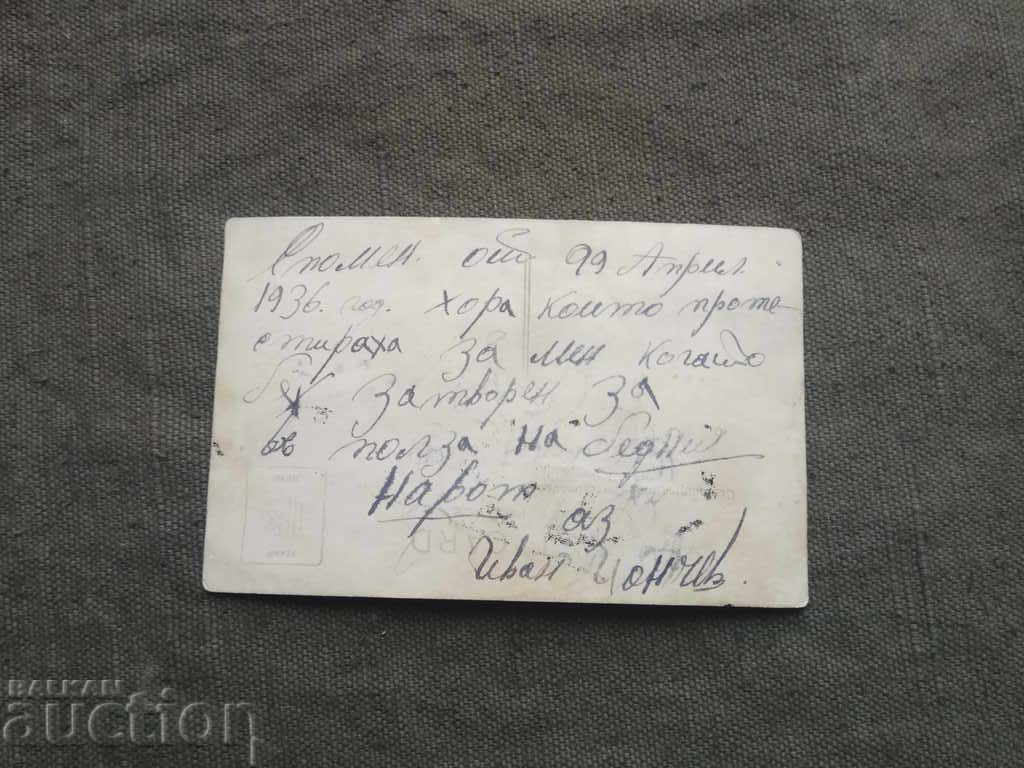 Спомен. от 29 Април.
1936. год. хора които проте-
стираха за мен когато
бех затворен за
въ полза на бедний
Народ
аз
Иван Цончев.
CARD
BALKAN
auction